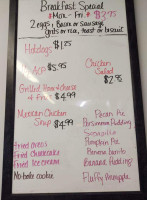 Breakfast Special
Mon - Fri $3.75
2 eggs, Bacon or Sausage
grits or rice, toast or biscuit
Holidays $1.25
$5.95
Chicken Salad
$2.85
Grilled Ham & Cheese
& Fries $4.99
Mexican Chicken
Soup $4.99
Pecan Pie
Persimmon Pudding
Pumpkin Pie
Fried Oreos
Fried Cheesecake
Banana Pudding
Fried Ice cream
No-bake cookie
Fluffy Pineapple